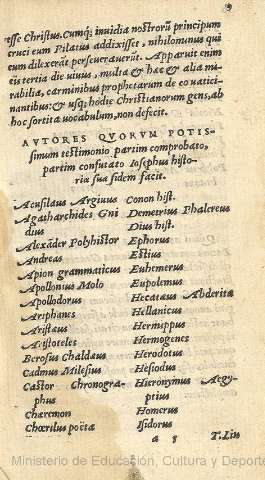 esse Christus. Cumq́; inuidia nostrorū principum
cruci eum Pilatus addixisset, nihilominus qui
eum dilexerāt perseuerauerūt. Apparuit enim
eis tertia die uiuus, multa & hæc & alia mi-
rabilia, carminibus prophetarum de eo uatici-
nantibus: & usq; hodie Christianorum gens, ab
hoc sortita uocabulum, non defecit.
AVTORES QVORVM POTIS-
simum testimonio partim comprobato,
partim confutato Iosephus histo-
riæ suæ fidem facit.
Acusilaus Argiuus
Agatharchides Gni
dius
Alexāder Polyhistor
Andreas
Apion grammaticus
Apollonius Molo
Apollodorus
Ariphanes
Aristæus
Aristoteles
Berosus Chaldæus
Cadmus Milesius
Castor Chronogra-
phus
Chæremon
Chœrilus poëta
Conon hist.
Demetrius Phalereus
Dius hist.
Ephorus
Estius
Euhemerus
Eupolemus
Hecatæus Abderita
Hellanicus
Hermippus
Hermogenes
Herodotus
Hesiodus
Hieronymus Aegy-
ptius
Homerus
Isidorus
a 5 T. Liu
Ministerio de Educación, Cultura y Deporte